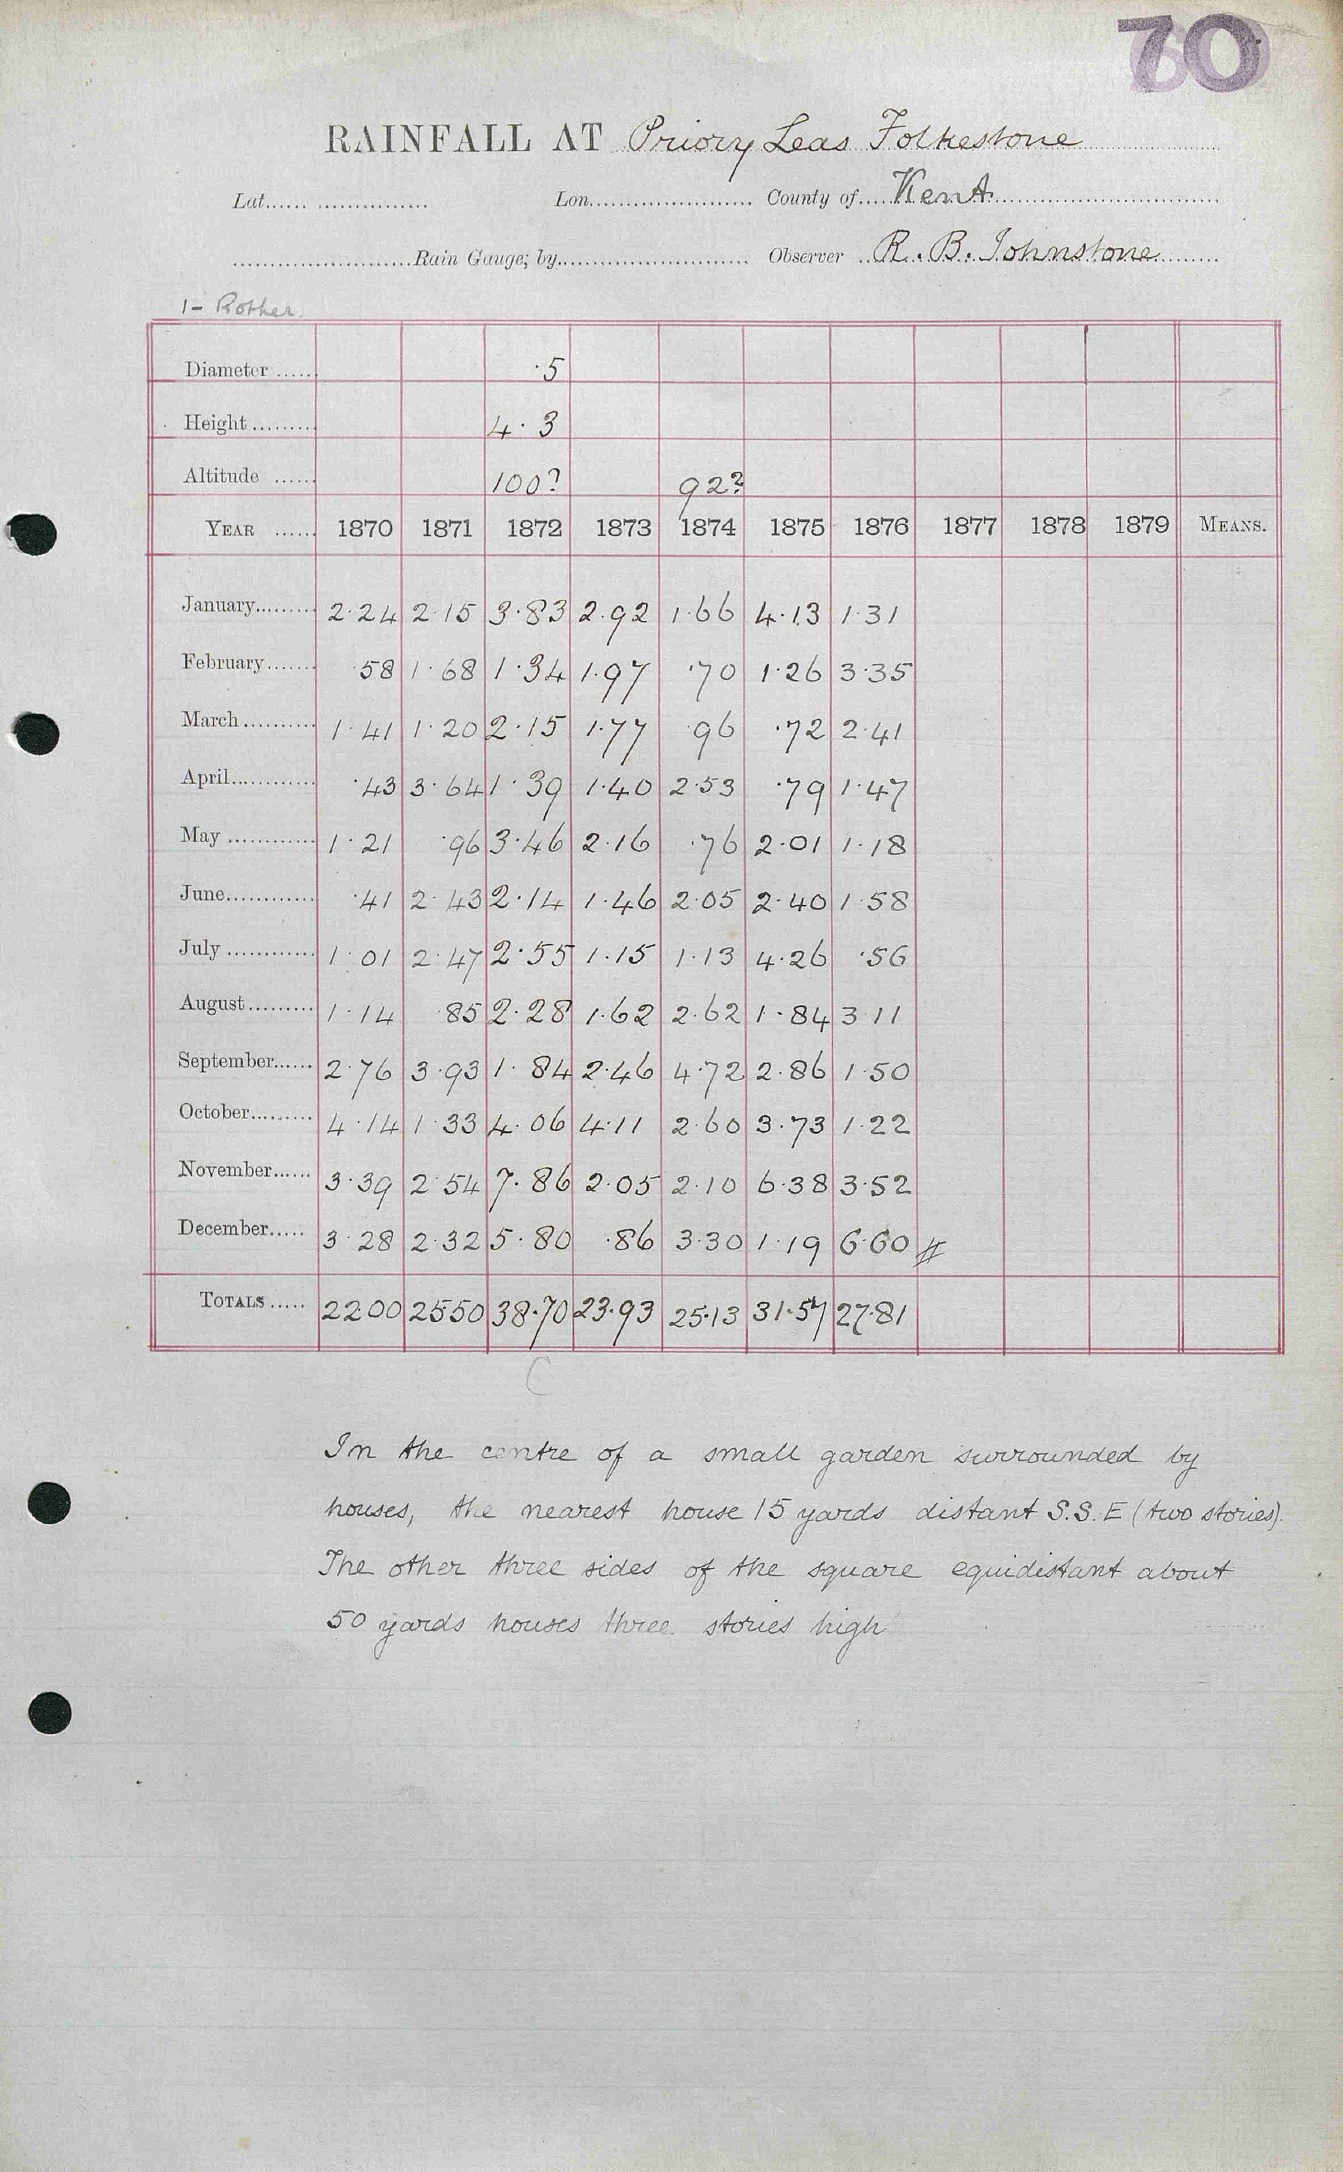 70
RAINFALL AT Priory Leas Folkestone
Lat...... ................ Lon....................... County of.... Kent
.........................Rain Gauge; by........................... Observer .. R. B. Johnstone
1- Rother.
Diameter ...... ·5
Height ......... 4·3
Altitude ...... 100? 92?
YEAR ...... 1870 1871 1872 1873 1874 1875 1876 1877 1878 1879 MEANS.
January......... 2·24 2·15 3·83 2·92 1·66 4·13 1·31
February....... ·58 1·68 1·34 1·97 ·70 1·26 3·35
March .......... 1·41 1·20 2·15 1·77 ·96 ·72 2·41
April............ ·43 3·64 1·39 1·40 2·53 ·79 1·47
May ............ 1·21 ·96 3·46 2·16 ·76 2·01 1·18
June............. ·41 2·43 2·14 1·46 2·05 2·40 1·58
July ............ 1·01 2·47 2·55 1·15 1·13 4·26 ·56
August ......... 1·14 ·85 2·28 1·62 2·62 1·84 3·11
September...... 2·76 3·93 1·84 2·46 4·72 2·86 1·50
October......... 4·14 1·33 4·06 4·11 2·60 3·73 1·22
November...... 3·39 2·54 7·86 2·05 2·10 6·38 3·52
December..... 3·28 2·32 5·80 ·86 3·30 1·19 6·60 #
TOTALS ..... 22 00 25 50 38·70 23·93 25·13 31·57 27·81
C
In the centre of a small garden surrounded by
houses, the nearest house 15 yards distant S.S.E (two stories).
The other three sides of the square equidistant about
50 yards houses three stories high